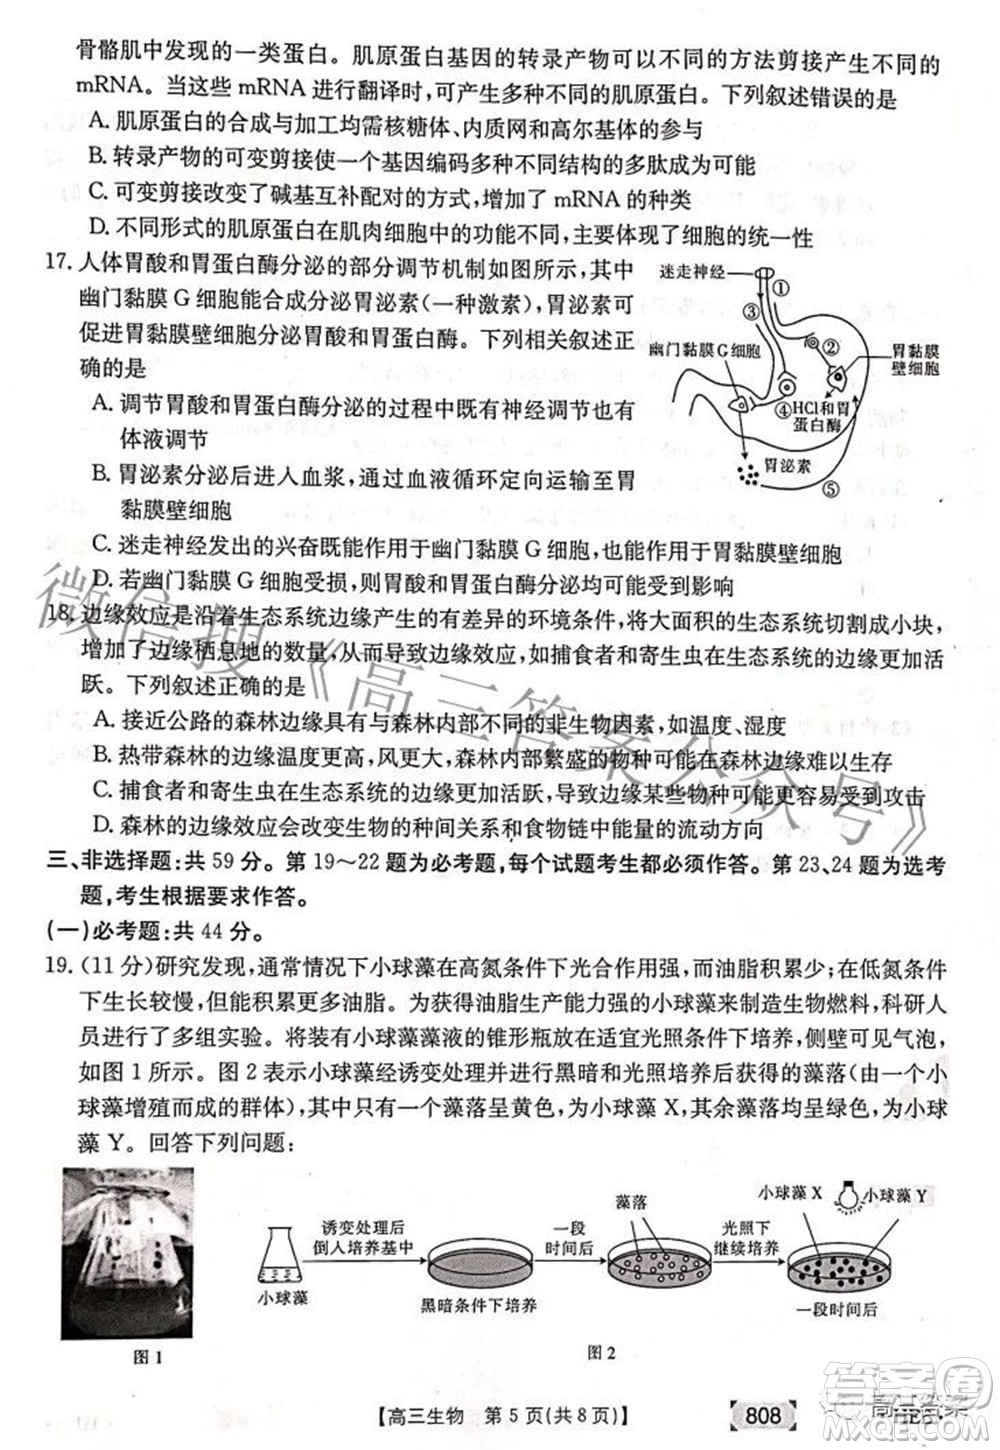 骨骼肌中发现的一类蛋白。肌原蛋白基因的转录产物可以不同的方法剪接产生不同的
mRNA。当这些 mRNA 进行翻译时,可产生不同的肌原蛋白。下列叙述错误的是
A. 肌原蛋白的合成与加工均需核糖体、内质网和高尔基体的参与
B. 转录产物的可变剪接使一个基因编码多种不同结构的多肽成为可能
C. 可变剪接改变了碱基互补配对的方式,增加了 mRNA 的种类
D. 不同形式的肌原蛋白在肌肉细胞中的功能不同,主要体现了细胞的统一性
17. 人体胃酸和胃蛋白酶分泌的部分调节机制如图所示,其中
幽门黏膜 G 细胞能合成分泌胃泌素(一种激素),胃泌素可
促进胃黏膜壁细胞分泌胃酸和胃蛋白酶。下列相关叙述正
确的是
A. 调节胃酸和胃蛋白酶分泌的过程中既有神经调节也有
体液调节
B. 胃泌素分泌后进入血浆,随着血液循环定向运输至胃
黏膜壁细胞
C. 迷走神经发出的兴奋既能作用于幽门黏膜 G 细胞,也能作用于胃黏膜壁细胞
D. 若幽门黏膜 G 细胞受损,则胃酸和胃蛋白酶分泌均可能受到影响
迷走神经
①
③
②
幽门黏膜 G 细胞
胃黏膜
壁细胞
④
HCl和胃
蛋白酶
胃泌素
⑤
18. 边缘效应是沿着生态系统边缘产生的有差异的环境条件,将大面积的生态系统切割成小块,
增加了边缘栖息地的数量,从而导致边缘效应,如捕食者和寄生虫在生态系统的边缘更加活
跃。下列叙述正确的是
A. 接近公路的森林边缘具有与森林内部不同的非生物因素,如温度、湿度
B. 热带森林的边缘温度更高、风更大,森林内部繁盛的物种可能在森林边缘难以生存
C. 捕食者和寄生虫在生态系统的边缘更加活跃,导致边缘某些物种可能会更多受到攻击
D. 森林的边缘效应会改变生物的种间关系和食物链中能量的流动方向
三、非选择题:共 59 分。第 19～22 题为必考题,每个试题考生都必须作答。第 23、24 题为选考
题,考生根据要求作答。
(一)必考题:共 44 分。
19. (11 分)研究发现,通常情况下小球藻在高氮条件下光合作用强,而油脂积累少;在低氮条件
下生长较慢,但会积累更多油脂。为获得油脂生产能力强的小球藻来制造生物燃料,科研人
员进行了多组实验。将装有小球藻藻液的锥形瓶放在适宜光照条件下培养,侧壁可见气泡,
如图 1 所示。图 2 表示小球藻经诱变处理并进行黑暗和光照培养后获得的藻落(由一个小
球藻增殖而成的群体),其中有一个藻落呈黄色,为小球藻 X,其余藻落均呈绿色,为小球
藻 Y。回答下列问题:
图 1
小球藻
诱变处理后
倒入培养基中
黑暗条件下培养
一段
时间后
藻落
光照下
继续培养
小球藻 X
小球藻 Y
一段时间后
图 2
【高三生物 第 5 页(共 8 页)】
808
微信搜《高三答案公众号》
答案圈
高三答案